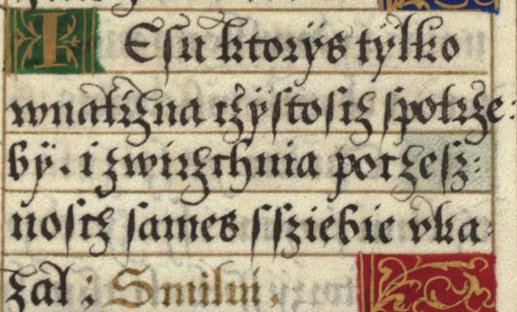 IEsu ktorys tylko
wnatrzna czystoscz spotrze:
by. i zwirzchnia poczesz:
noscz sames s siebie vka:
zal; Smilui.